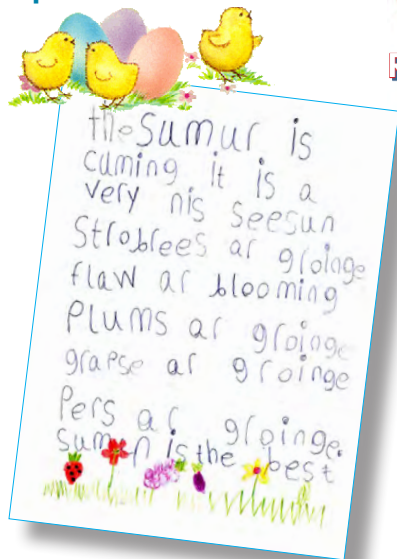 the Sumur is
cuming it is a
very nis Seesun
Stroblees ar groinge
flaw ar blooming
PLUMS ar groinge
grapse ar groinge
Pers ar groinge.
is the best